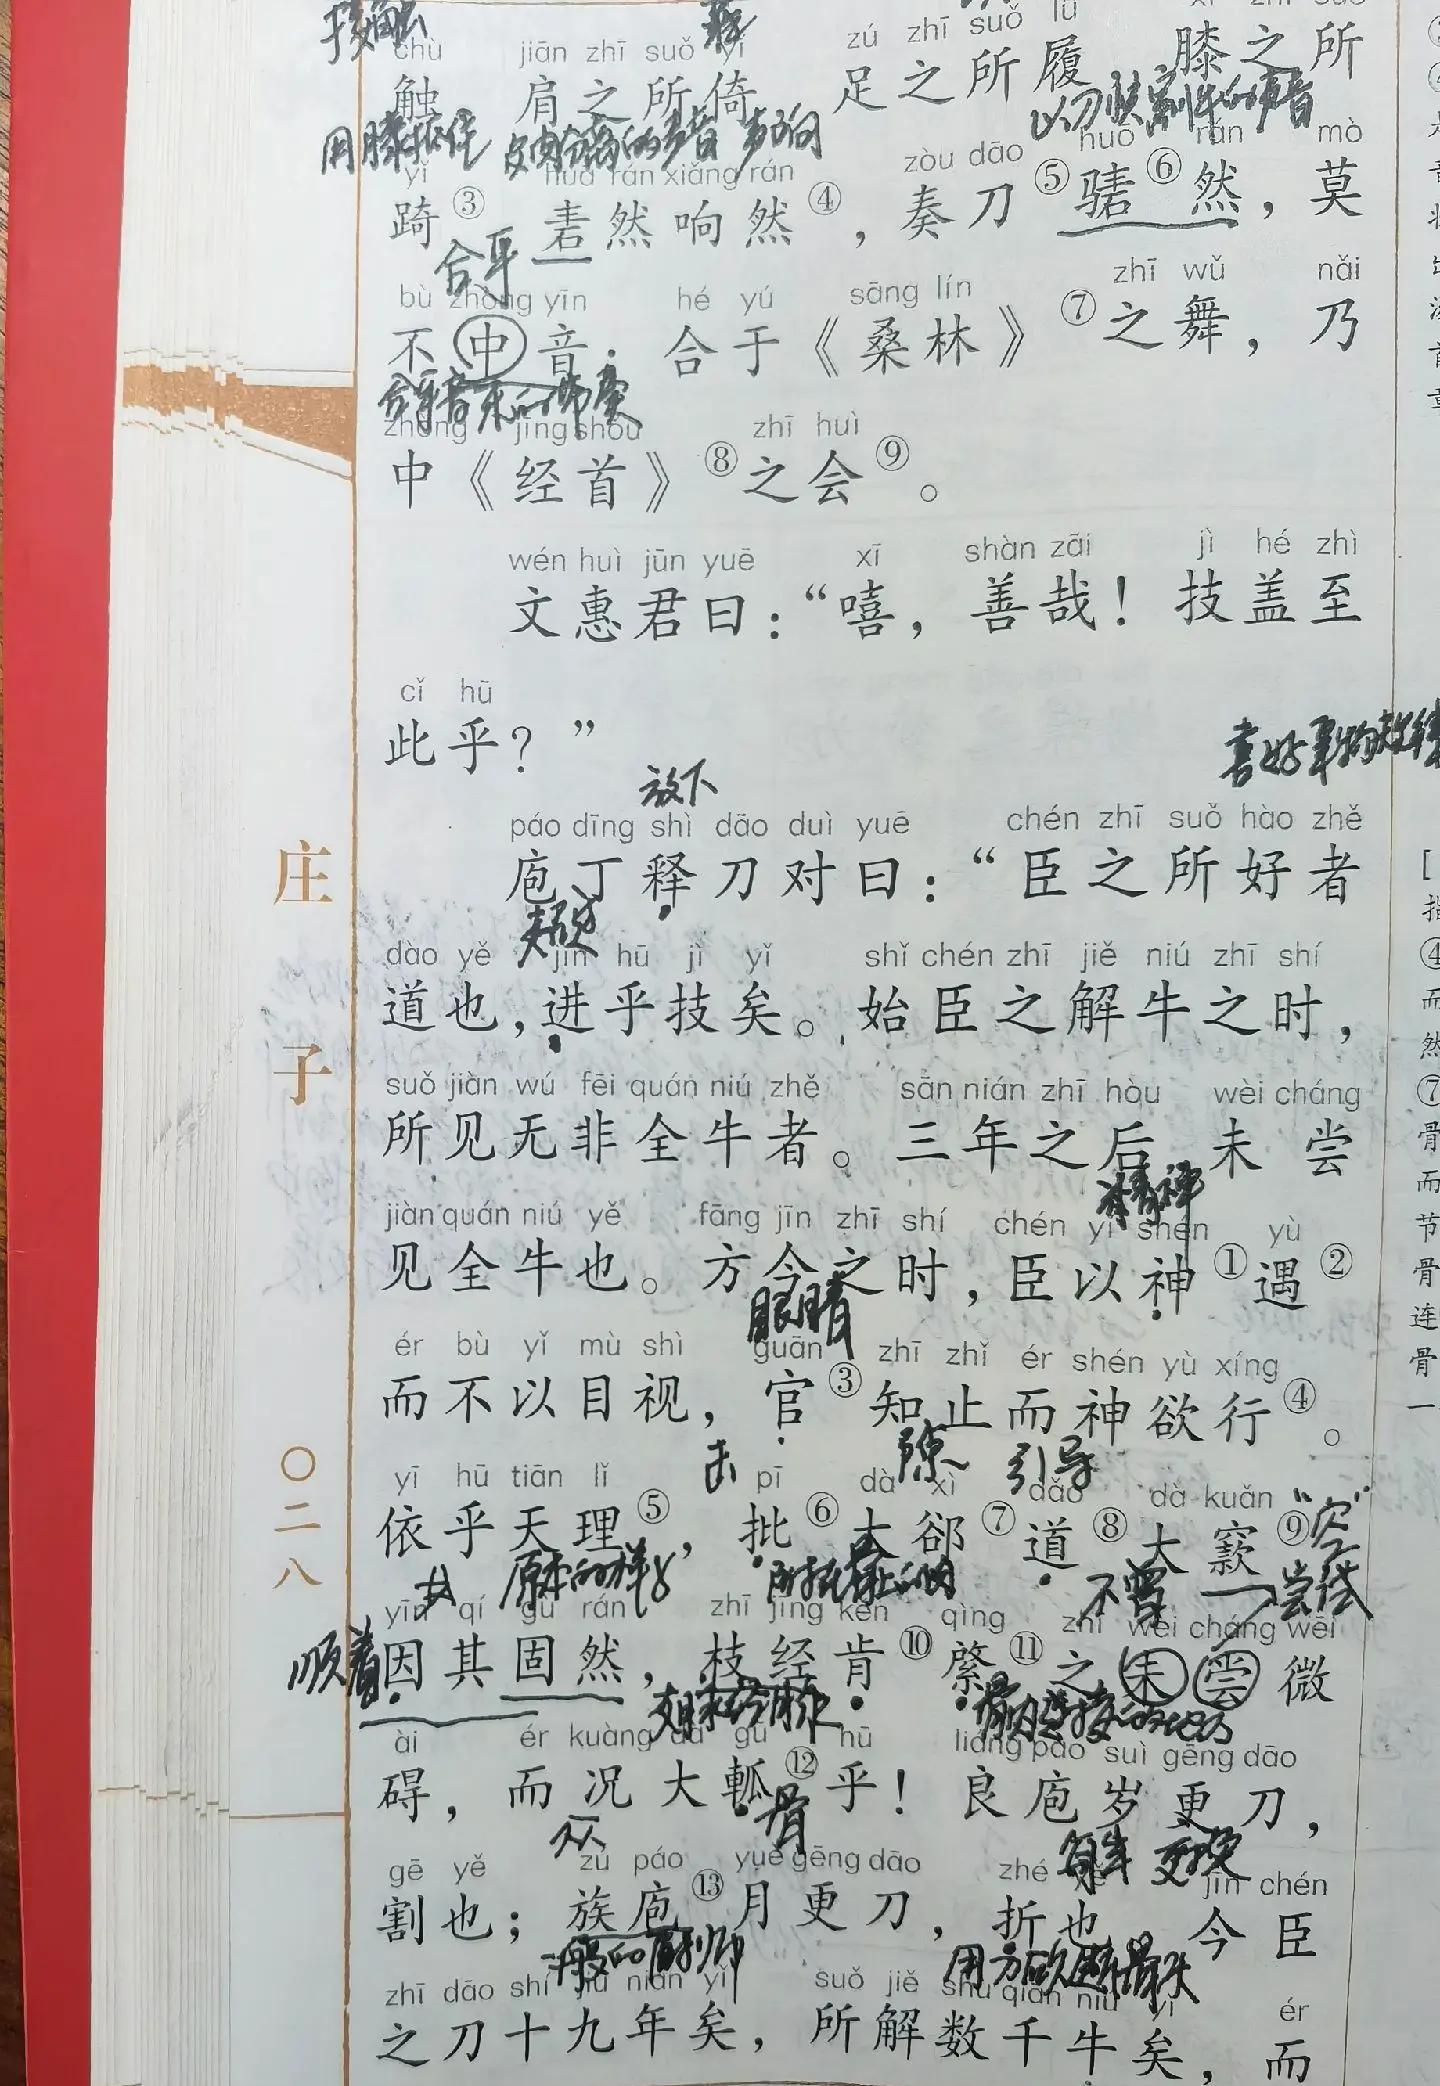 接触
chù jiān zhī suǒ yǐ zú zhī suǒ lǚ xī zhī suǒ
触 肩之所倚 足之所履 膝之所
用膝抵住 皮肉分离的声音 声响 以刀快割牛的声音
yǐ huā rán xiǎng rán zòu dāo huō rán mò
踦③ 砉然响然④，奏刀⑤騞⑥然，莫
合乎
bù zhòng yīn hé yú sāng lín zhī wǔ nǎi
不中音. 合于《桑林》⑦之舞，乃
合乎音乐的节奏
zhòng jīng shǒu zhī huì
中《经首》⑧之会⑨。
wén huì jūn yuē xī shàn zāi jì hé zhì
文惠君曰：“嘻，善哉！技盖至
cǐ hū
此乎？”
喜好事物
放下
páo dīng shì dāo duì yuē chén zhī suǒ hào zhě
庖丁释刀对曰：“臣之所好者
超过
dào yě jìn hū jì yǐ shǐ chén zhī jiě niú zhī shí
道也，进乎技矣。始臣之解牛之时，
suǒ jiàn wú fēi quán niú zhě sān nián zhī hòu wèi cháng
所见无非全牛者。三年之后 未尝
精神
jiàn quán niú yě fāng jīn zhī shí chén yǐ shén yù
见全牛也。方今之时，臣以神①遇②
眼睛
ér bù yǐ mù shì guān zhī zhǐ ér shén yù xíng
而不以目视，官③知止而神欲行④。
击 引导
yī hū tiān lǐ pī dà xì dǎo dà kuǎn “空”
依乎天理⑤，批⑥大郤⑦道⑧大窾⑨
原本的样子 不曾 尝试
yīn qí gù rán zhī jīng kěn qìng zhī wèi cháng wēi
顺着 因其固然，枝经肯⑩綮⑪之未尝微
骨肉连接的地方
ài ér kuàng dà gū hū liáng páo suì gēng dāo
碍，而况大軱⑫乎！良庖岁更刀，
众 骨 更换
gē yě zú páo yuè gēng dāo zhé yě jīn chén
割也；族庖⑬月更刀，折也 今臣
一般的厨师 用刀砍断骨头
zhī dāo shí jiǔ nián yǐ suǒ jiě shù qiān niú yǐ ér
之刀十九年矣，所解数千牛矣，而
庄子
〇二八